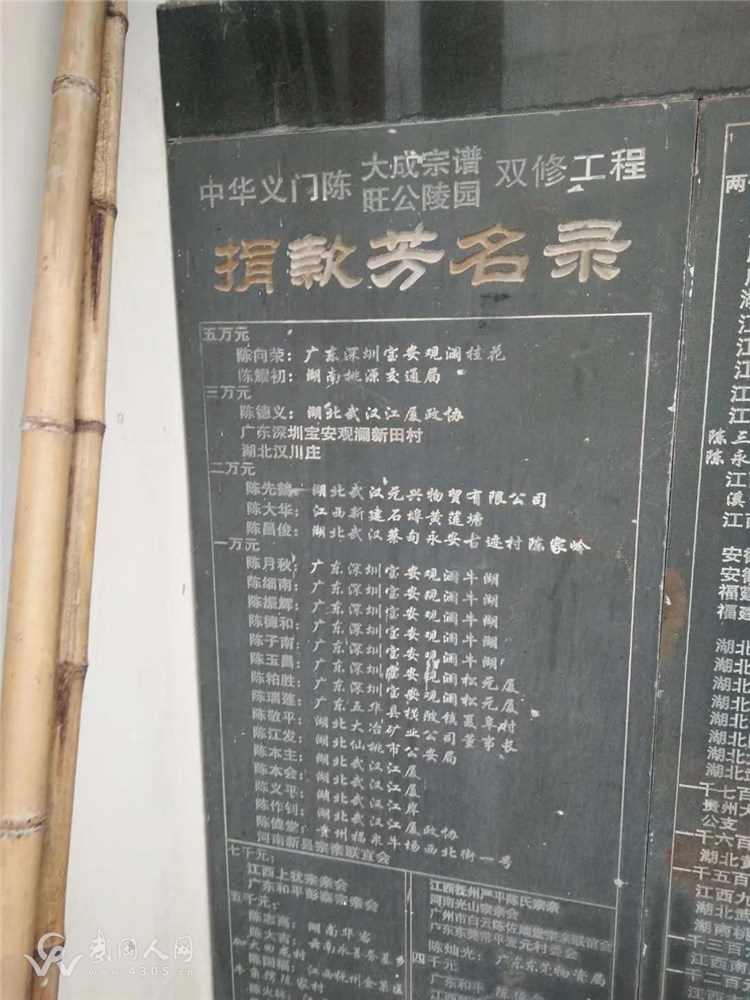 中华义门陈 大成宗谱 双修工程
旺公陵园
捐款芳名录
五万元
陈向荣：广东深圳宝安观澜桂花
陈耀初：湖南桃源交通局
三万元
陈德义：湖北武汉江厦政协
广东深圳宝安观澜新田村
湖北汉川庄
二万元
陈先鹤：湖北武汉元兴物贸有限公司
陈大华：江西新建石埠黄莲塘
陈昌俊：湖北武汉蔡甸永安古迹村陈家岭
一万元
陈月秋：广东深圳宝安观澜牛湖
陈细南：广东深圳宝安观澜牛湖
陈振辉：广东深圳宝安观澜牛湖
陈德和：广东深圳宝安观澜牛湖
陈子南：广东深圳宝安观澜牛湖
陈玉昌：广东深圳宝安观澜松元厦
陈狛胜：广东深圳宝安观澜松元厦
陈瑞莲：广东五华县横陂夏阜村
陈敬平：湖北大冶矿业公司董事长
陈江发：湖北仙桃市公安局
陈本主：湖北武汉江厦
陈本会：湖北武汉江厦
陈义平：湖北武汉江岸
陈作钊：湖北武汉江厦政协
陈健堂：贵州福泉牛场西北街一号
河南新县宗亲联宜会
七千元：
江西上犹宗亲会
广东和平彭寨宗亲会
五千元：
陈志高：湖南华容
陈大吉：云南永善务基乡
加大田老村
陈国福：江西抚州金巢区
陈火
江西抚州严平陈氏宗亲
河南光山宗亲会
广州市白云陈佐墟堂宗亲联谊会
广东东莞常平发元村委会
陈灿光：广东东莞物资局
四千元
广东和平
两
陈三
陈永
江西
溪
江西
安徽
安徽
福建
福建
湖北
湖北
湖北
湖北
湖北
湖北
湖北
湖北
一千七百
贵州大
公支
一千六百
湖北
一千五百
江西九
湖北武
湖南桃
一千三百
江西南
一千二百
武冈人网
www.4305.cn